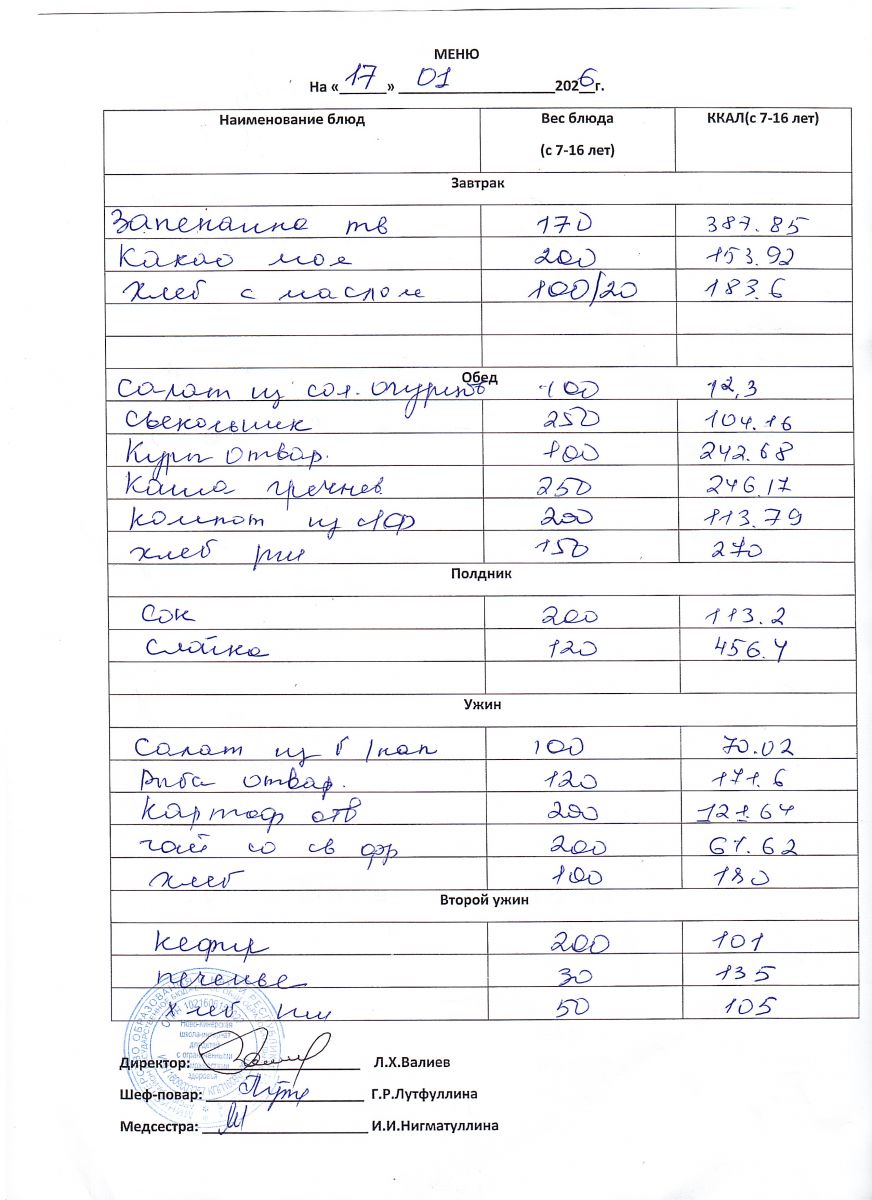 МЕНЮ
На «17» 01 2026 г.
Наименование блюд Вес блюда (с 7-16 лет) ККАЛ(с 7-16 лет)
Завтрак
Запеканка тв 170 387.85
Какао мол 200 153.92
Хлеб с маслом 100/20 183.6
Обед
Салат из сол. огурцов 100 12,3
Свекольник 250 104.16
Куры отвар. 100 242.68
Каша гречнев 250 246.17
Компот из с/ф 200 113.79
хлеб рш 150 270
Полдник
Сок 200 113.2
Слойка 120 456.4
Ужин
Салат из б/кап 100 70.02
Рыба отвар. 120 171.6
Картоф отв 200 121.64
чай со св фр 200 61.62
хлеб 100 180
Второй ужин
кефир 200 101
печенье 30 135
хлеб пш 50 105
Директор: Л.Х.Валиев
Шеф-повар: Г.Р.Лутфуллина
Медсестра: И.И.Нигматуллина
Ново-Кинерская
школа-интернат
для детей
с ограниченными
возможностями
здоровья